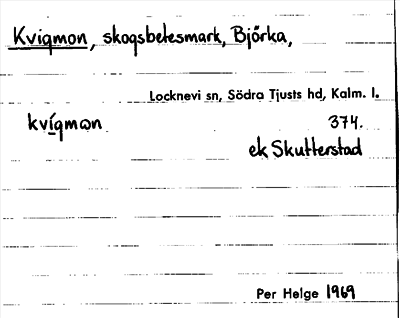 Kvigmon, skogsbetesmark, Björka,
Locknevi sn, Södra Tjusts hd, Kalm. l.
kvígmon 374.
ek Skutterstad
Per Helge 1969